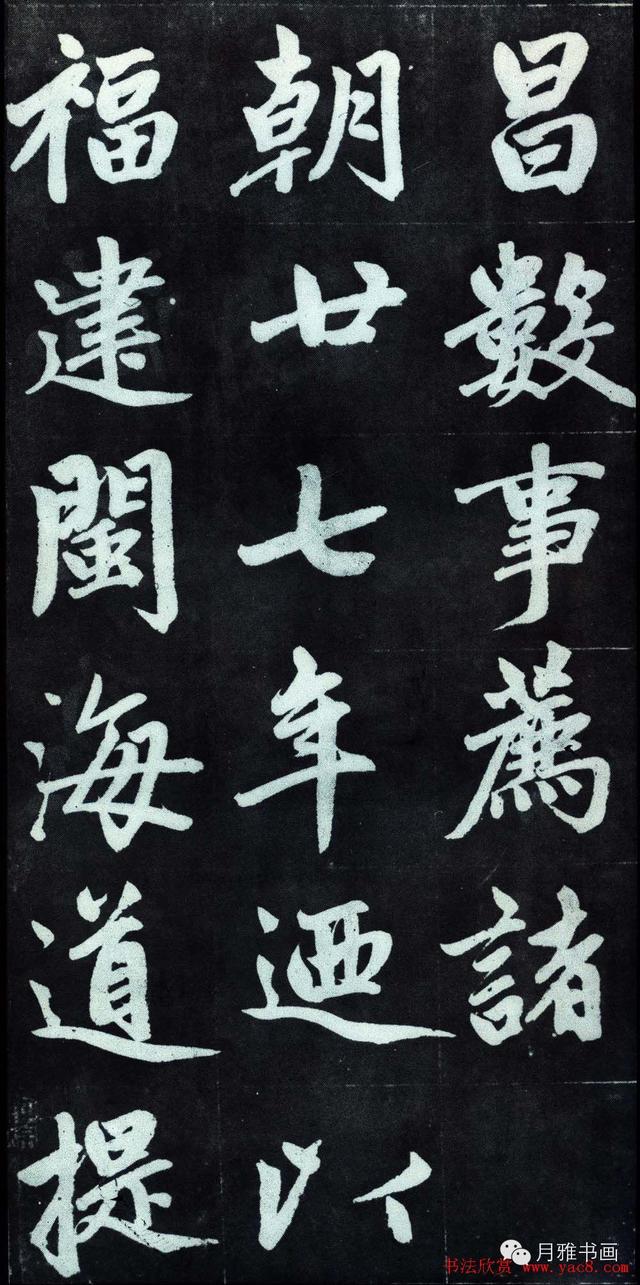 昌數事薦諸
朝廿七年迺以
福建閩海道提
月雅书画
书法欣赏 www.yac8.com